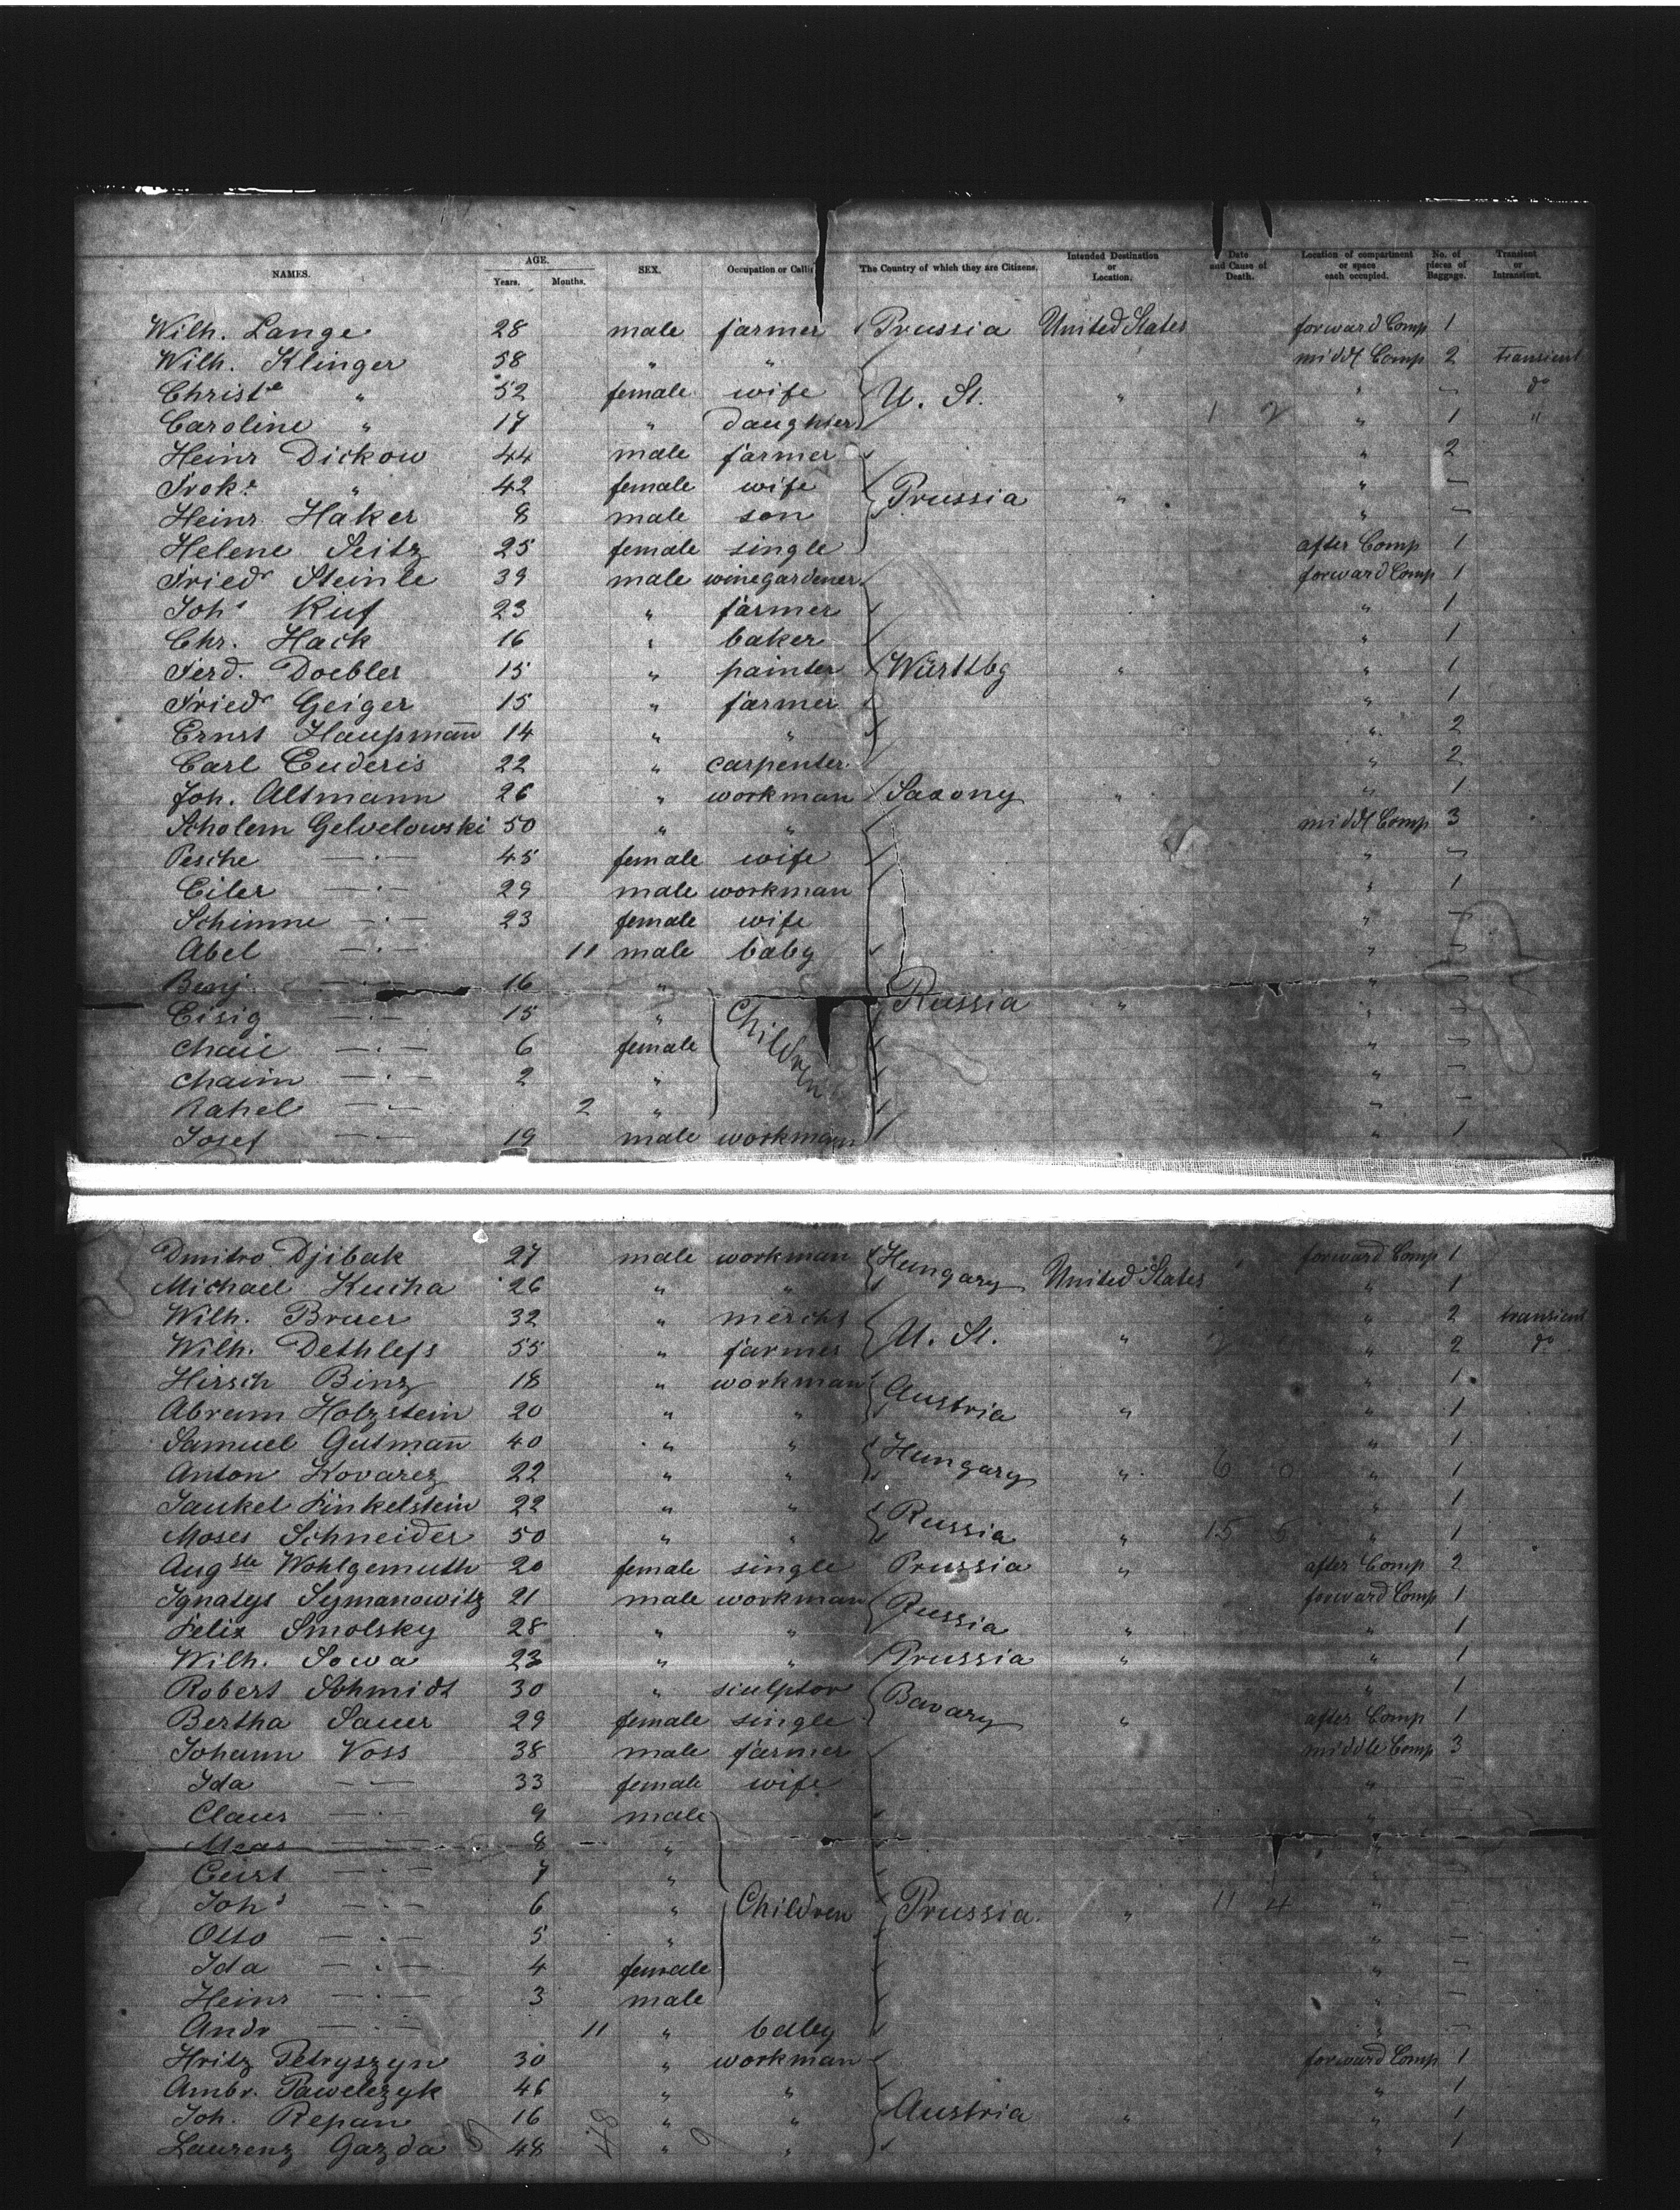 NAMES. AGE. Years. Months. SEX. Occupation or Calling The Country of which they are Citizens. Intended Destination or Location. Date and Cause of Death. Location of compartment or space each occupied. No. of pieces of Baggage. Transient or Intransient.
Wilh. Lange 28 male farmer Prussia United States forward Comp 1
Wilh. Klinger 58 " " middl Comp 2 Transient
Christe " 52 female wife U. St. " " — do
Caroline " 17 " daughter 1 2 " 1 "
Heinr Dickow 44 male farmer " 2
Froke " 42 female wife Prussia " " —
Heinr Haker 8 male son " —
Helene Seitz 25 female single after Comp 1
Friedr Steinle 39 male winegardener forward Comp 1
Johs Ruf 23 " farmer " 1
Chr. Hack 16 " baker " 1
Ferd. Doebler 15 " painter Württbg " " 1
Friedr Geiger 15 " farmer " 1
Ernst Haupmann 14 " " " 2
Carl Euderis 22 " carpenter " 2
Joh. Altmann 26 " workman Saxony " " 1
Scholem Gelvelowski 50 " " middl Comp 3
Pesche — . — 45 female wife " —
Eiler — . — 29 male workman " 1
Schimme — . — 23 female wife " —
Abel — . — 11 male baby " —
Benj. — . — 16 " Russia " " —
Eisig — . — 15 " Children " —
Chaie — . — 6 female " —
Chaim — . — 2 " " —
Rahel — . — 2 " " —
Josef — . — 19 male workmann " 1
Dmitro Djibak 27 male workman Hungary United States forward Comp 1
Michael Kucha 26 " " " 1
Wilh. Bruer 32 " mercht U. St. " " 2 transient
Wilh. Dethlefs 55 " farmer " 2 do
Hirsch Binz 18 " workman Austria " 1
Abram Holzstein 20 " " " " 1
Samuel Gutmann 40 " " Hungary " 1
Anton Kovarez 22 " " " 6 0 " 1
Jankel Finkelstein 22 " " Russia " 1
Moses Schneider 50 " " " 15 5 " 1
Augste Wohlgemuth 20 female single Prussia " after Comp 2
Ignatys Symanowitz 21 male workman Russia forward Comp 1
Felix Smolsky 28 " " " " 1
Wilh. Sowa 23 " " Prussia " " 1
Robert Schmidt 30 " sculptor Bavary " 1
Bertha Sauer 29 female single " after Comp 1
Johann Voss 38 male farmer middle Comp 3
Ida — . — 33 female wife " —
Claus — . — 9 male " —
— . — 8 " "
Curt — . — 7 " " —
Johs — . — 6 " Children Prussia. " 11 4 "
Otto — . — 5 " " —
Ida — . — 4 female " —
Heinr — . — 3 male " —
Andr — . — 11 " baby " —
Hritz Petryszyn 30 " workman forward Comp 1
Ambr. Pawelczyk 46 " " " 1
Joh. Repan 16 " " Austria " " 1
Laurenz Gazda 48 " " " 1